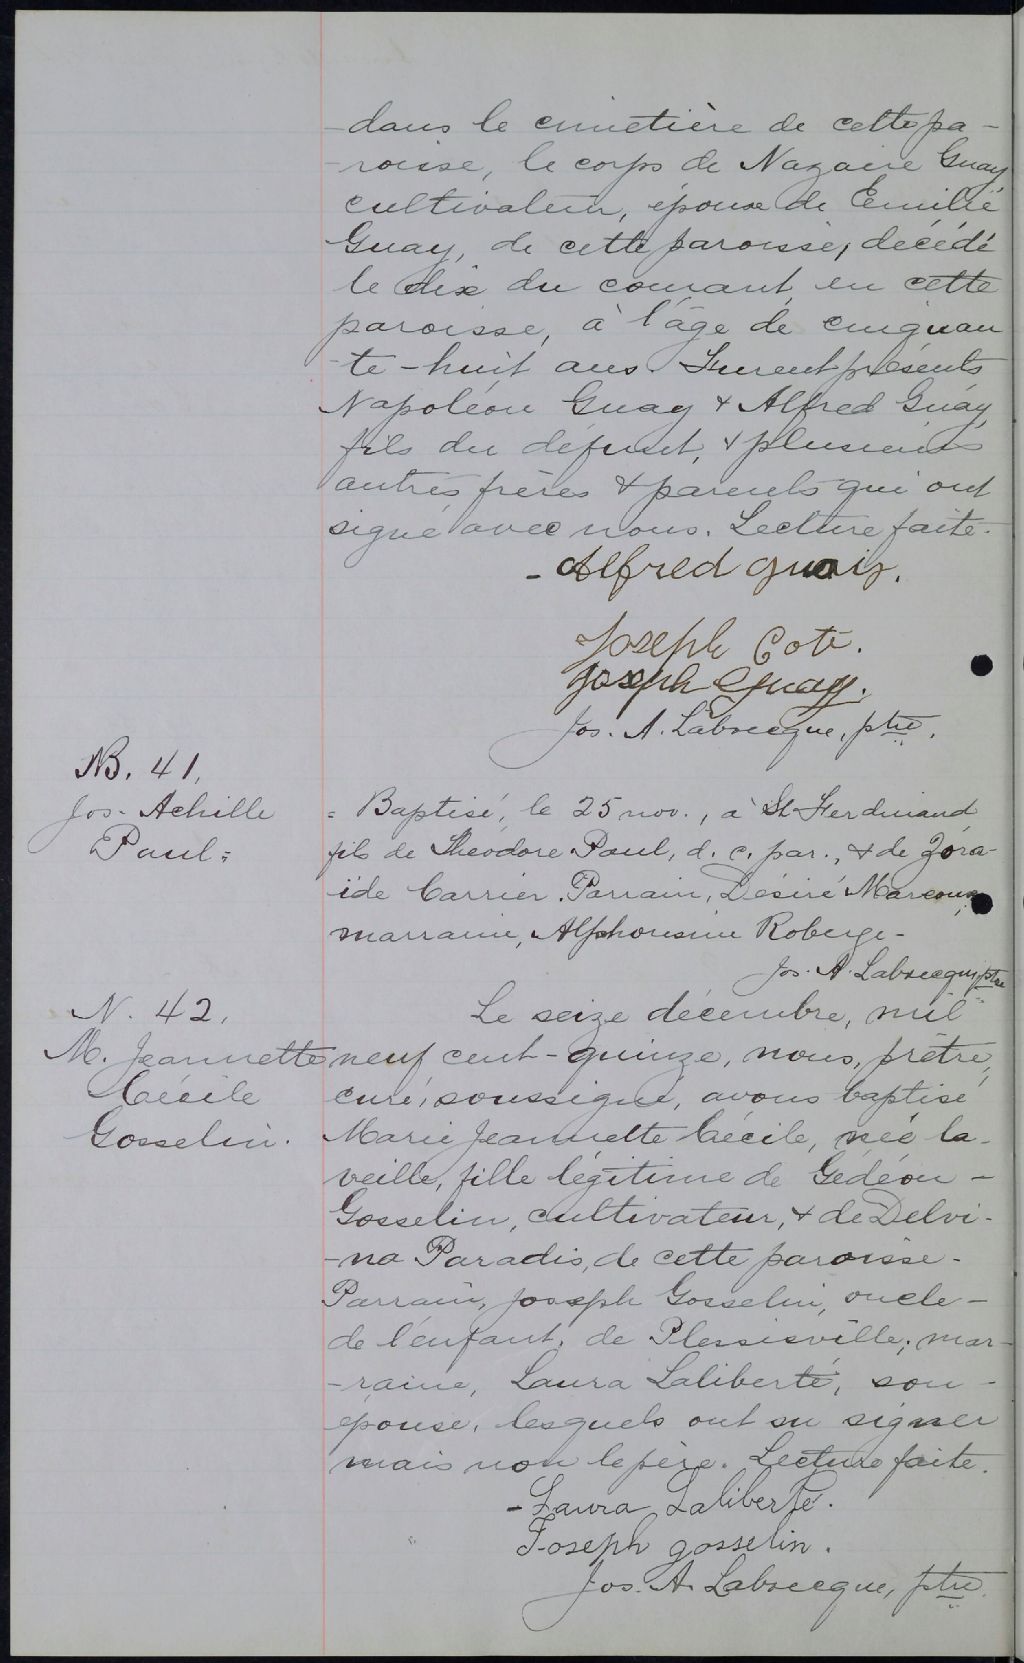 -dans le cimetière de cette pa-
-roisse, le corps de Nazaire Guay
cultivateur, époux de Emilie
Guay, de cette paroisse, décédé
le dix du courant, en cette
paroisse, à l'âge de cinquan
-te-huit ans. Furent présents
Napoléon Guay & Alfred Guay,
fils du défunt, & plusieurs
autres frères & parents qui ont
signé avec nous. Lecture faite.
- Alfred Guay.
Joseph Coté.
Joseph Guay.
Jos. A. Labrecque, ptre.
NB. 41.
Jos. Achille
Paul =
= Baptisé, le 25 nov., à St-Ferdinand
fils de Théodore Paul, d. c. par., & de Zora-
-ide Carrier. Parrain, Désiré Marcoux;
marraine, Alphonsine Roberge-
Jos. A. Labrecque, ptre
N. 42.
M. Jeannette
Cécile
Gosselin.
Le seize décembre, mil
neuf cent-quinze, nous, prêtre,
curé, soussigné, avons baptisé
Marie Jeannette Cécile, née la-
veille, fille légitime de Gédéon -
Gosselin, cultivateur, & de Delvi-
-na Paradis, de cette paroisse -
Parrain, Joseph Gosselin, oncle -
de l'enfant, de Plessisville; mar-
-raine, Laura Laliberté, son -
épouse, lesquels ont su signer
mais non le père. Lecture faite.
- Laura Laliberté.
Joseph gosselin.
Jos. A. Labrecque, ptre.